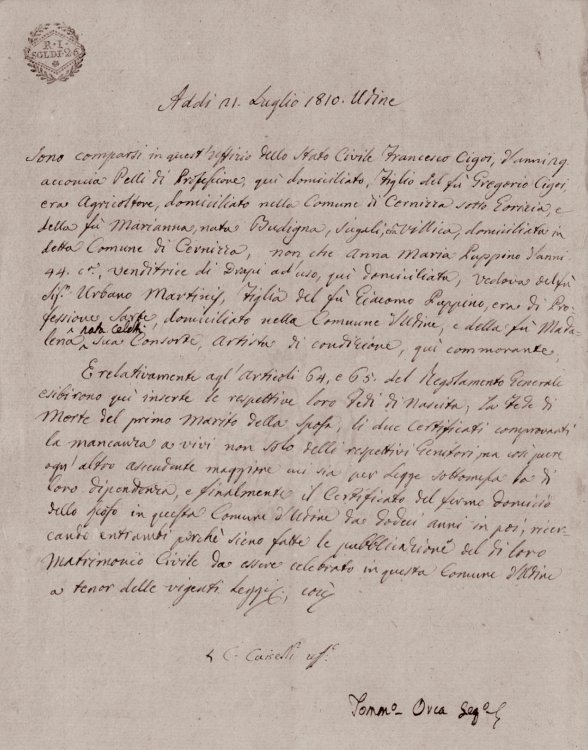 R. I.
SGLDI. 26
Addi 21. Luglio 1810. Udine
Sono comparsi in quest'Uffizio dello Stato Civile Francesco Cigoi, d'anni 29.
acconcia Pelli di Professione, qui domiciliato, Figlio del fù Gregorio Cigoi,
era Agricoltore, domiciliato nella Comune di Cernizza sotto Gorizia, e
della fù Marianna, nata Budigna, Villica, domiciliata in
detta Comune di Cernizza, non che Anna Maria Puppino d'anni
44. cr., venditrice di drapi ad uso, qui domiciliata, vedova del fù
Sig.r Urbano Martinis, Figlia del fù Giacomo Puppino, era di Pro-
fessione Sarte, domiciliato nella Comune d'Udine, e della fù Mada-
lena nata Celotti sua Consorte, Artista di condizione, qui commorante.
E relativamente agl'Articoli 64, e 65. del Regolamento Generale
esibirono qui inserte le respettive loro Fedi di Nascita, La Fede di
Morte del primo Marito della Sposa, li due Certificati comprovanti
la mancanza a vivi non solo delli respettivi Genitori, ma così pure
ogn'altro ascendente maggiore cui sia per Legge sottomessa la di
loro dipendenza, e finalmente il Certificato del fermo domicilio
dello sposo in questa Comune d'Udine da dodeci anni in poi, ricer-
cando entrambi perchè sieno fatte le pubblicazioni del di loro
Matrimonio Civile da essere celebrato in questa Comune d'Udine
a tenor delle vigenti Leggi, così
C. Caiselli uff.e
Tomm.o Orca Seg.o